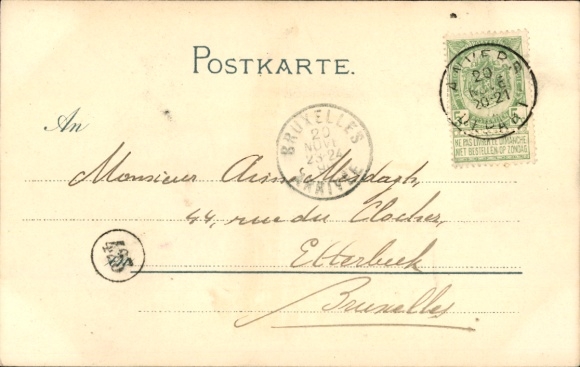 POSTKARTE.
ANVERS
20
20-21
DÉPART
5
NE PAS LIVRER LE DIMANCHE
NIET BESTELLEN OP ZONDAG
An
BRUXELLES
20
NOV
23-24
ARRIVÉE
Monsieur
44, rue du Clocher,
Etterbeek
Bruxelles